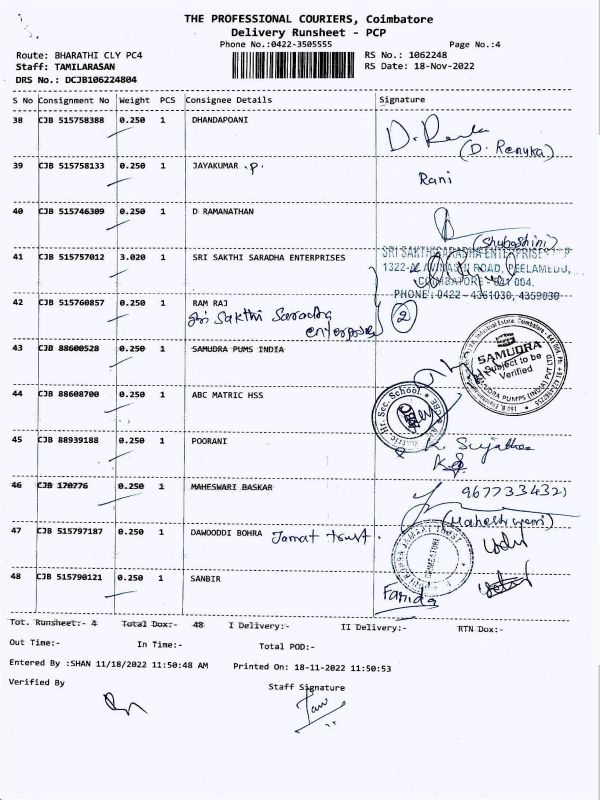 THE PROFESSIONAL COURIERS, Coimbatore
Delivery Runsheet - PCP
Phone No.:0422-3505555 Page No.:4
Route: BHARATHI CLY PC4 RS No.: 1062248
Staff: TAMILARASAN RS Date: 18-Nov-2022
DRS No.: DCJB106224804
S No Consignment No Weight PCS Consignee Details Signature
38 CJB 515758388 0.250 1 DHANDAPOANI
(D. Renuka)
39 CJB 515758133 0.250 1 JAYAKUMAR .P.
Rani
40 CJB 515746309 0.250 1 D RAMANATHAN
(Shubashini)
41 CJB 515757012 3.020 1 SRI SAKTHI SARADHA ENTERPRISES
SRI SAKTHI SARADHA ENTERPRISES
AVINASHI ROAD, PEELAMEDU,
COIMBATORE - 641 004.
PHONE: 0422 - 4361030, 4359030
42 CJB 515760857 0.250 1 RAM RAJ
Sri Sakthi Saradha 2
enterprises
43 CJB 88600528 0.250 1 SAMUDRA PUMS INDIA
SAMUDRA
Subject to be
Verified
44 CJB 88608700 0.250 1 ABC MATRIC HSS
Hr. Sec. School
45 CJB 88939188 0.250 1 POORANI
K. Sujatha
46 CJB 170776 0.250 1 MAHESWARI BASKAR
(Maheshwari)
47 CJB 515797187 0.250 1 DAWOODDI BOHRA Jamat trust.
COIMBATORE
48 CJB 515790121 0.250 1 SANBIR
Farida
Tot. Runsheet:- 4 Total Dox:- 48 I Delivery:- II Delivery:- RTN Dox:-
Out Time:- In Time:- Total POD:-
Entered By :SHAN 11/18/2022 11:50:48 AM Printed On: 18-11-2022 11:50:53
Verified By Staff Signature